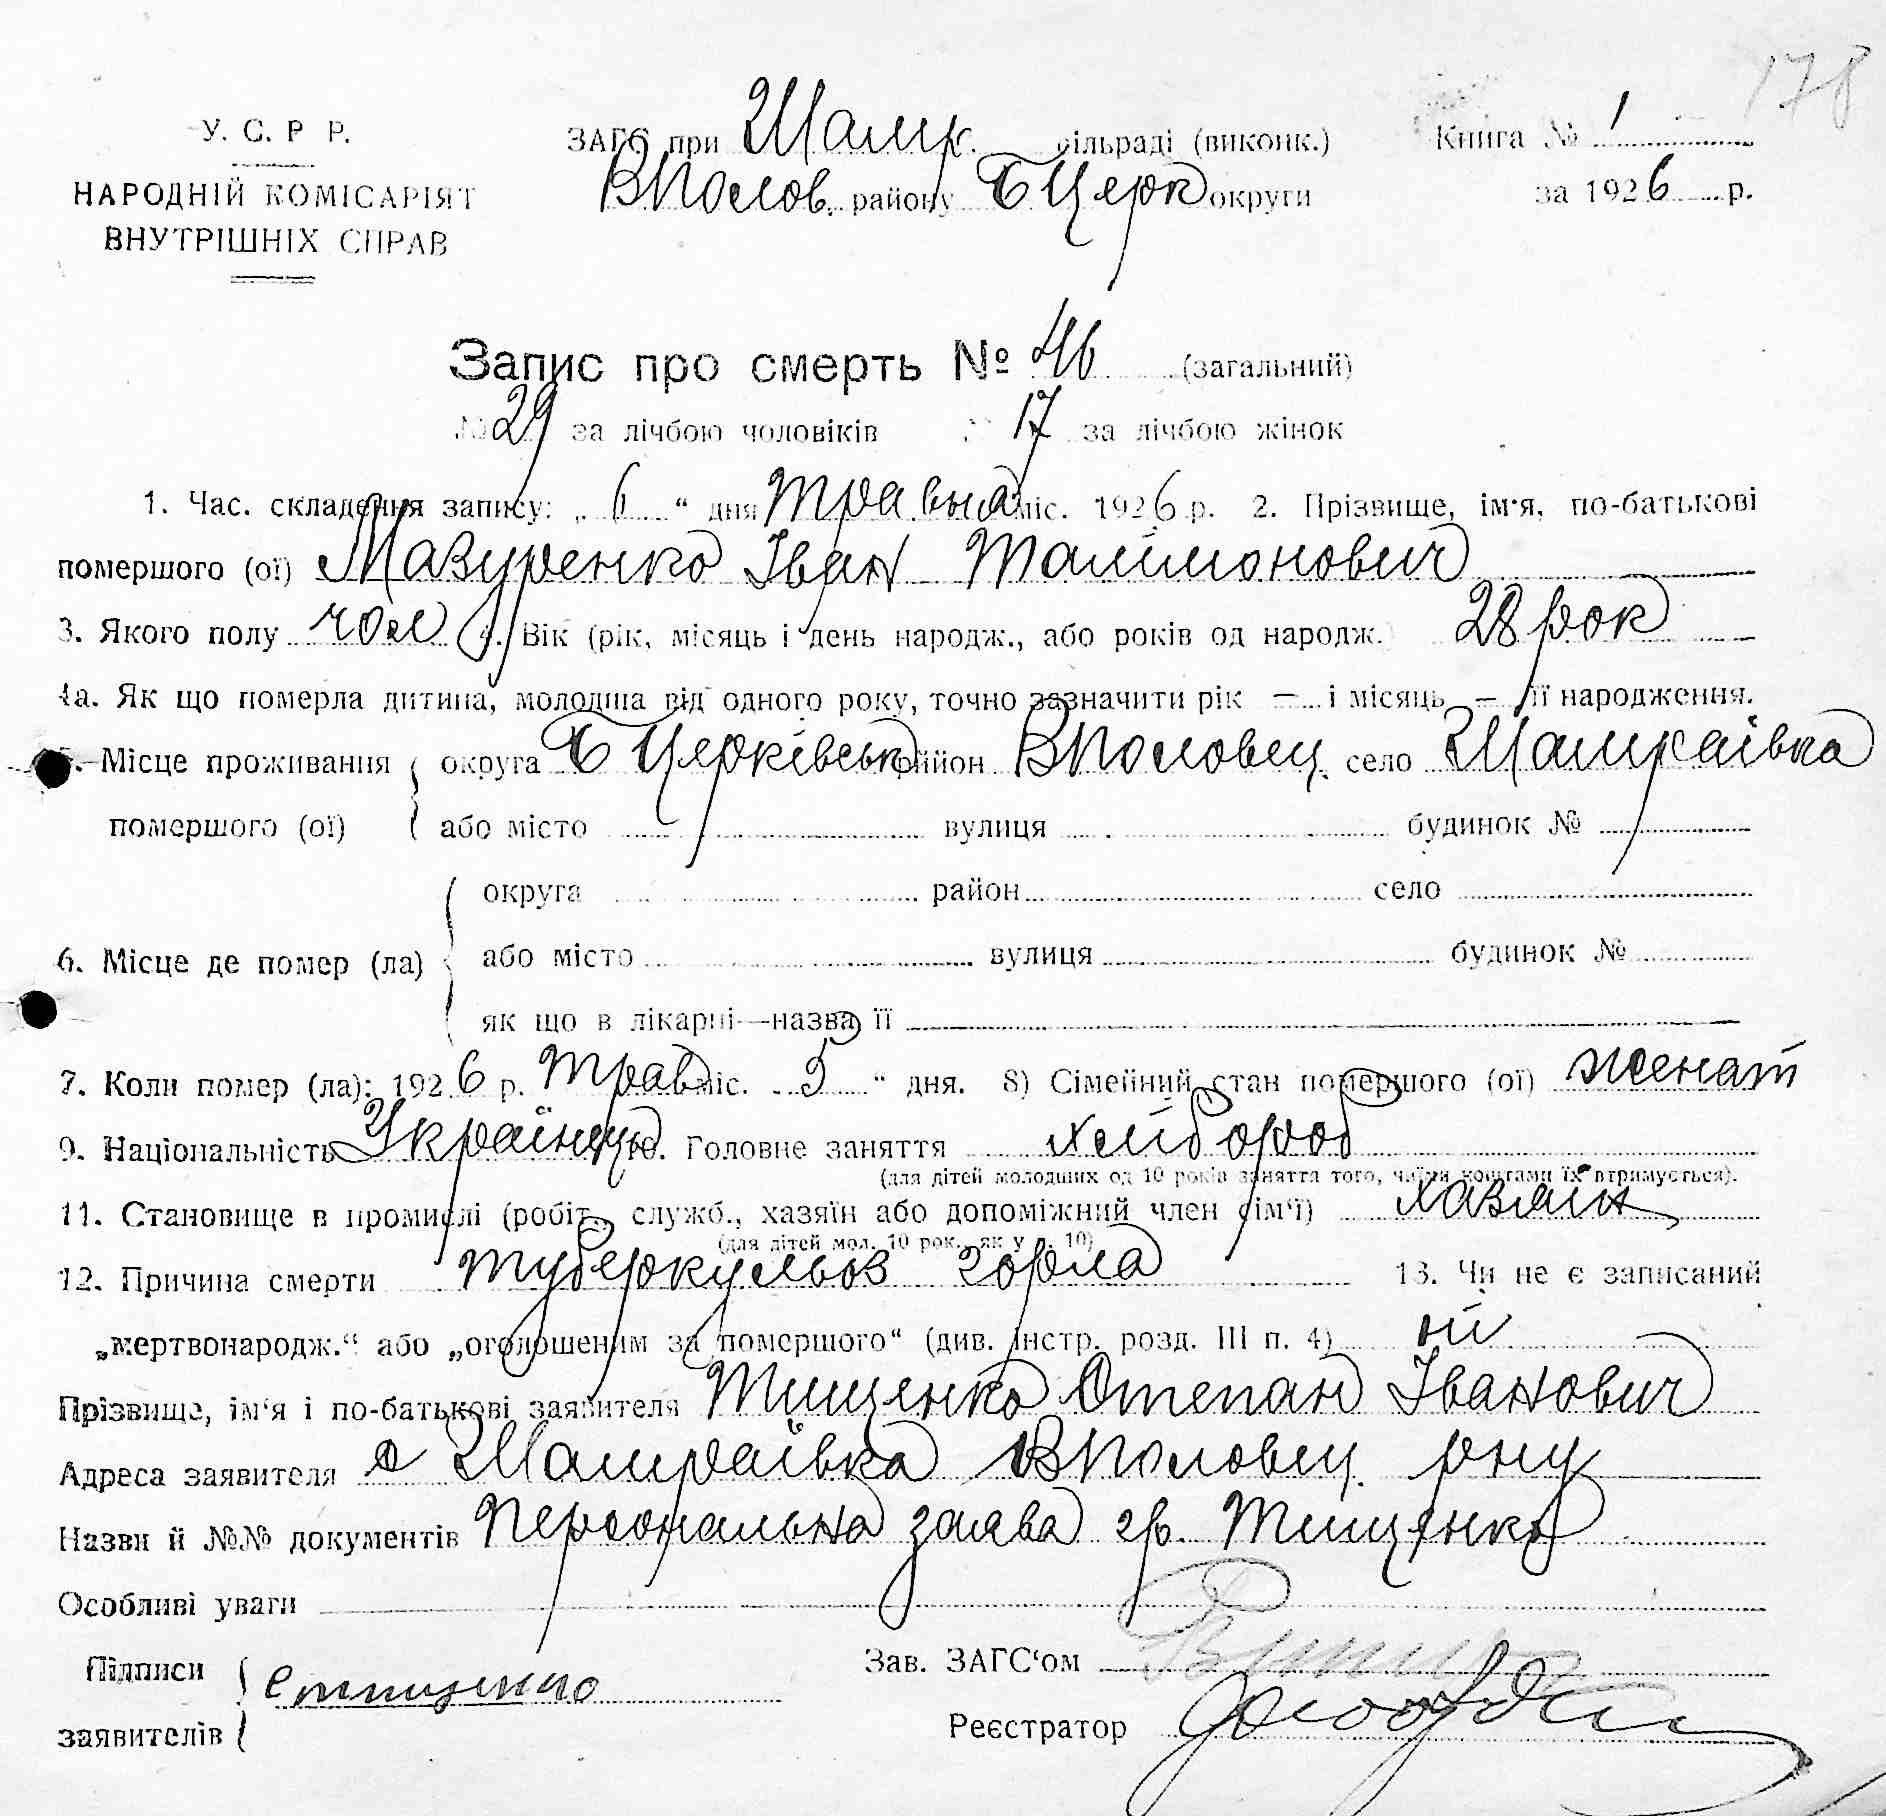 178
У. С. Р Р.
НАРОДНІЙ КОМІСАРІЯТ
ВНУТРІШНІХ СПРАВ
ЗАГС при Шамр. сільраді (виконк.)
ВПолов. району БЦерк округи
Книга № 1
за 1926 р.
Запис про смерть № 46 (загальний)
№ 29 за лічбою чоловіків № 17 за лічбою жінок
1. Час. складення запису: „ 6 “ дня травня міс. 1926 р. 2. Прізвище, ім'я, по-батькові
помершого (ої) Мазуренко Іван Талімонович
3. Якого полу чол 4. Вік (рік, місяць і день народж., або років од народж.) 28 рок
4а. Як що померла дитина, молодша від одного року, точно зазначити рік — і місяць — її народження.
5. Місце проживання помершого (ої) { округа БЦерківськ район ВПоловец. село Шамраівка
або місто вулиця будинок №
6. Місце де помер (ла) { округа район село
або місто вулиця будинок №
як що в лікарні—назва її
7. Коли помер (ла): 1926 р. Трав міс. 5 “ дня. 8) Сімейний стан помершого (ої) женат
9. Національність Україн 10. Головне заняття хлібороб
(для дітей молодших од 10 років заняття того, чиїми коштами їх втримується).
11. Становище в промислі (робіт., служб., хазяїн або допоміжний член сім'ї) хазяін
(для дітей мол. 10 рок., як у п. 10)
12. Причина смерти туберкульоз горла 13. Чи не є записаний
„мертвонародж.“ або „оголошеним за помершого“ (див. інстр. розд. III п. 4) ні
Прізвище, ім'я і по-батькові заявителя Тищенко Степан Іванович
Адреса заявителя с Шамраївка ВПоловец. рну
Назви й №№ документів Персональна заява гр. Тищенко
Особливі уваги
Підписи заявителів { Стищенко
Зав. ЗАГС'ом
Реєстратор